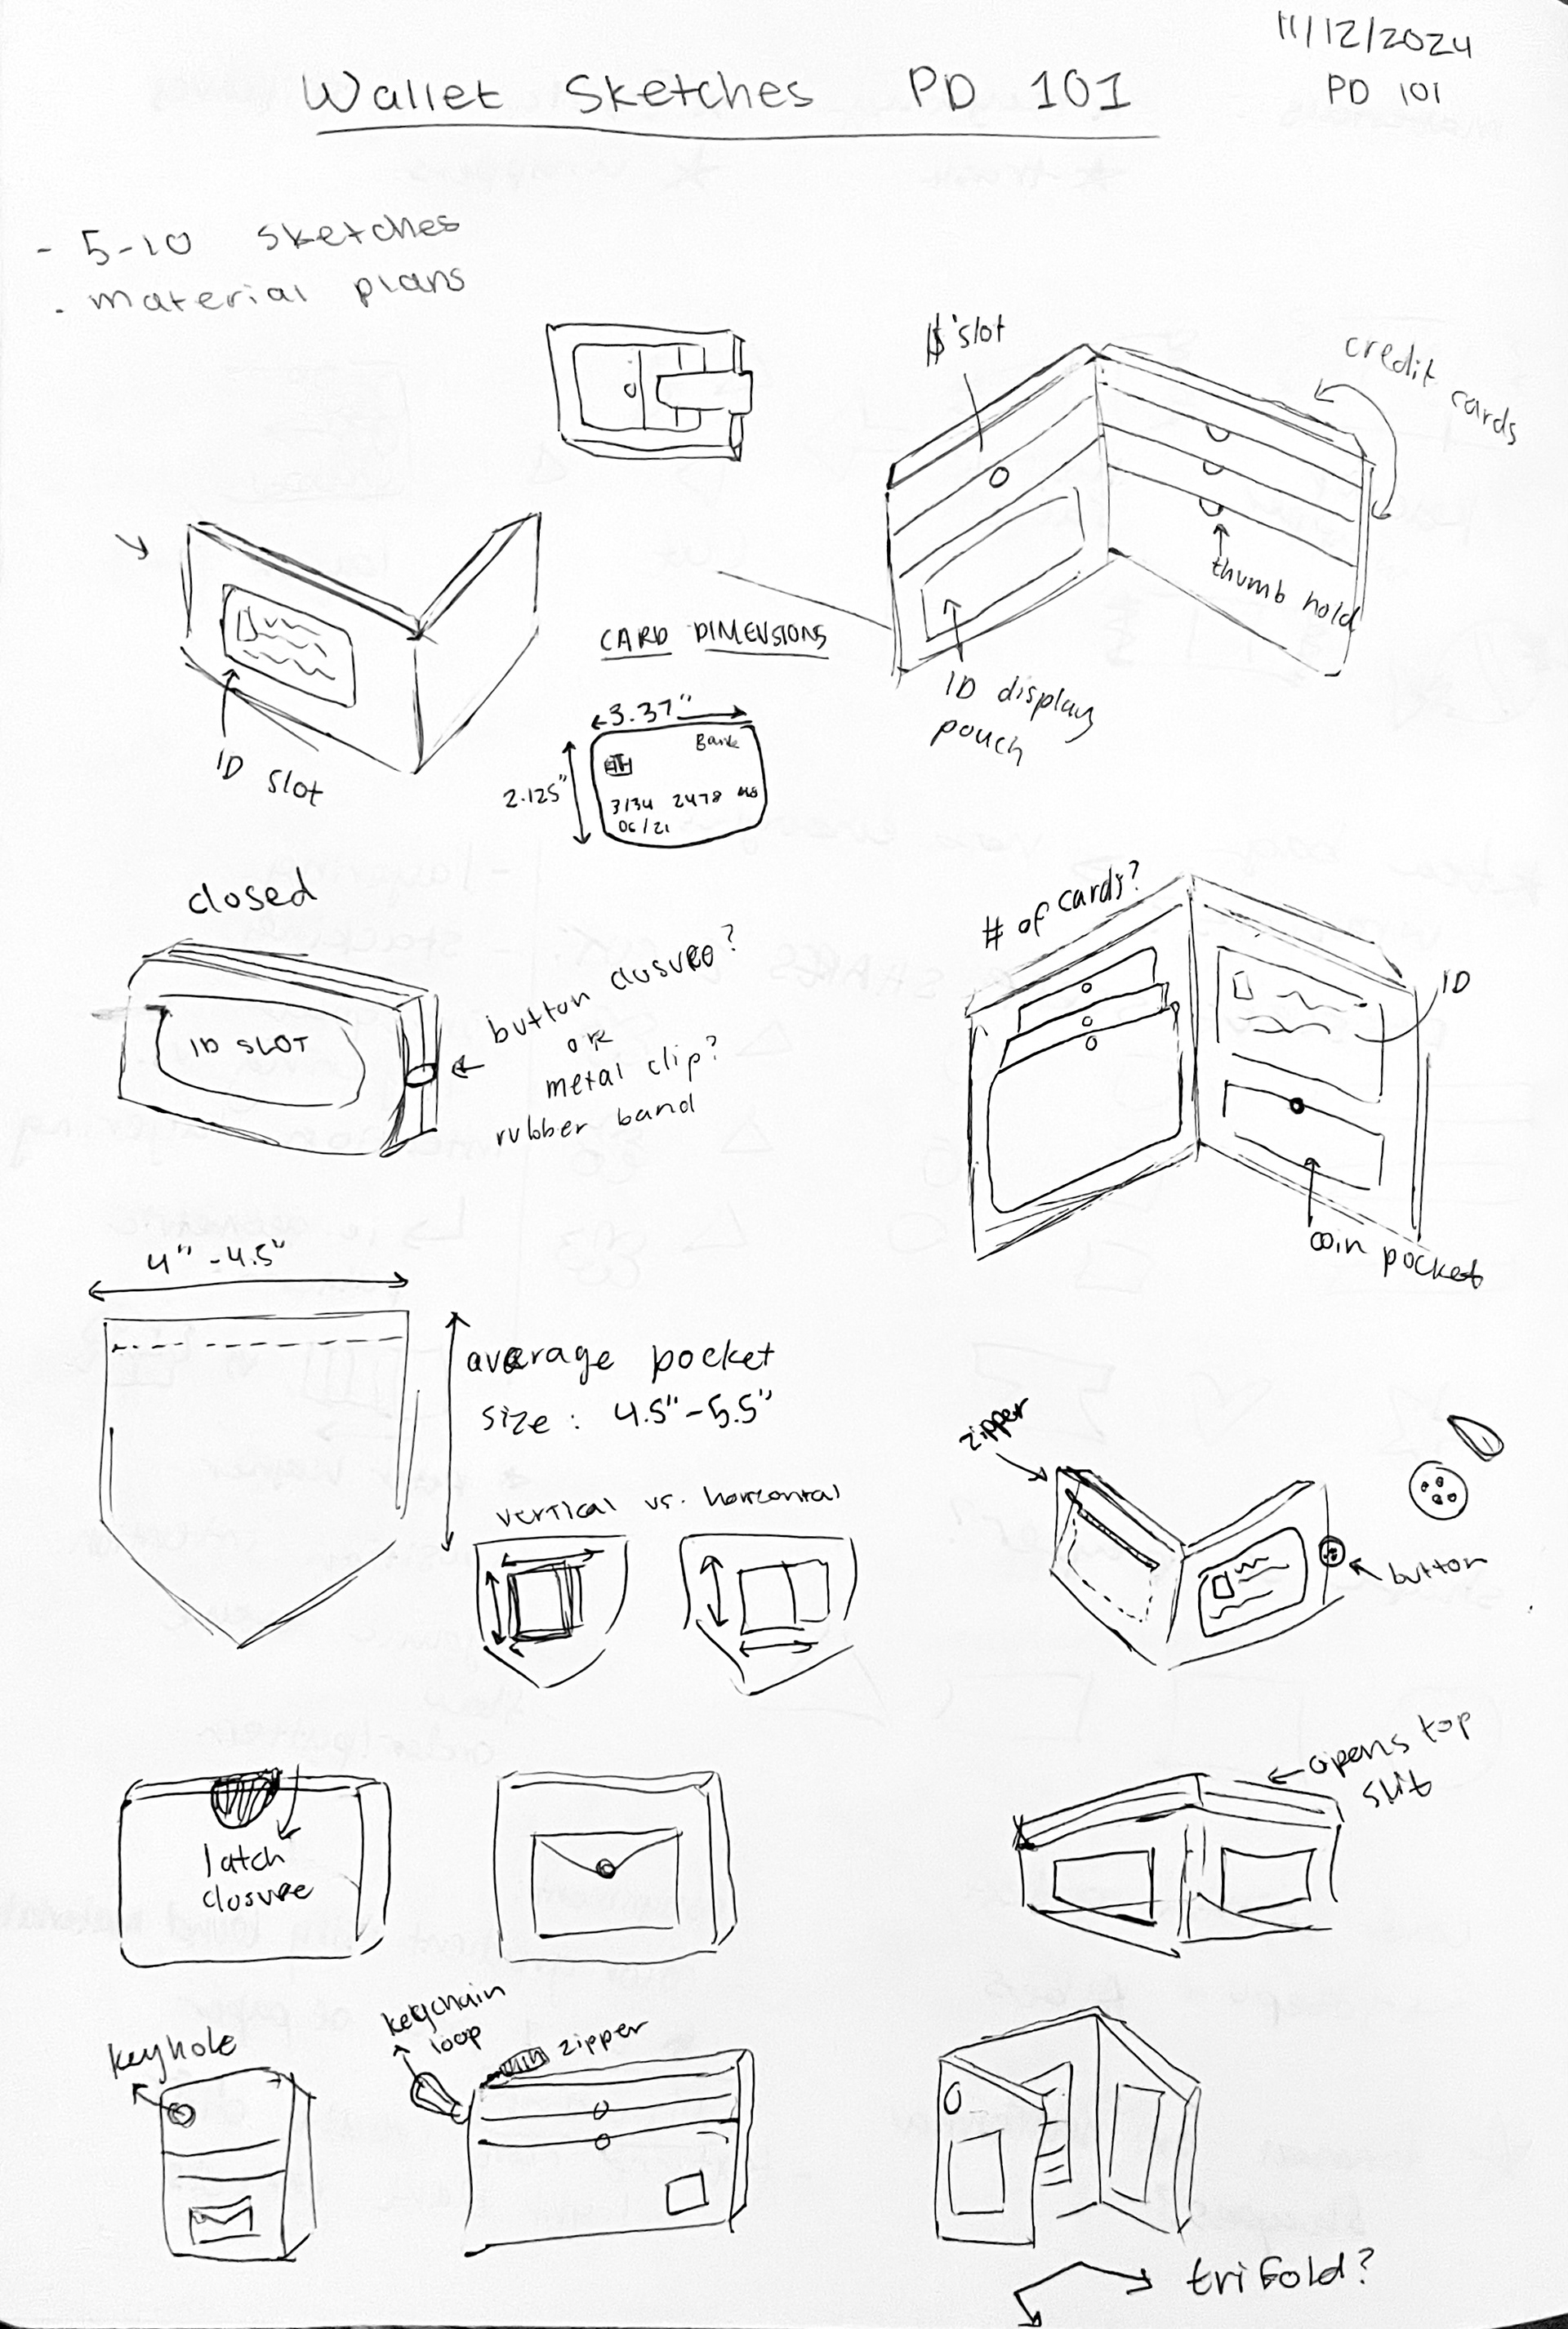 11/12/2024
PD 101
Wallet Sketches PD 101
- 5-10 sketches
- material plans
$ slot
credit cards
thumb hold
ID display
pouch
ID slot
CARD DIMENSIONS
3.37"
2.125"
Bank
3134 2478
06/21
closed
ID SLOT
button closure?
OR
metal clip?
rubber band
# of cards?
ID
coin pocket
4" - 4.5"
average pocket
size: 4.5" - 5.5"
vertical vs. horizontal
zipper
button
latch
closure
opens top
slit
keyhole
keychain
loop
zipper
trifold?